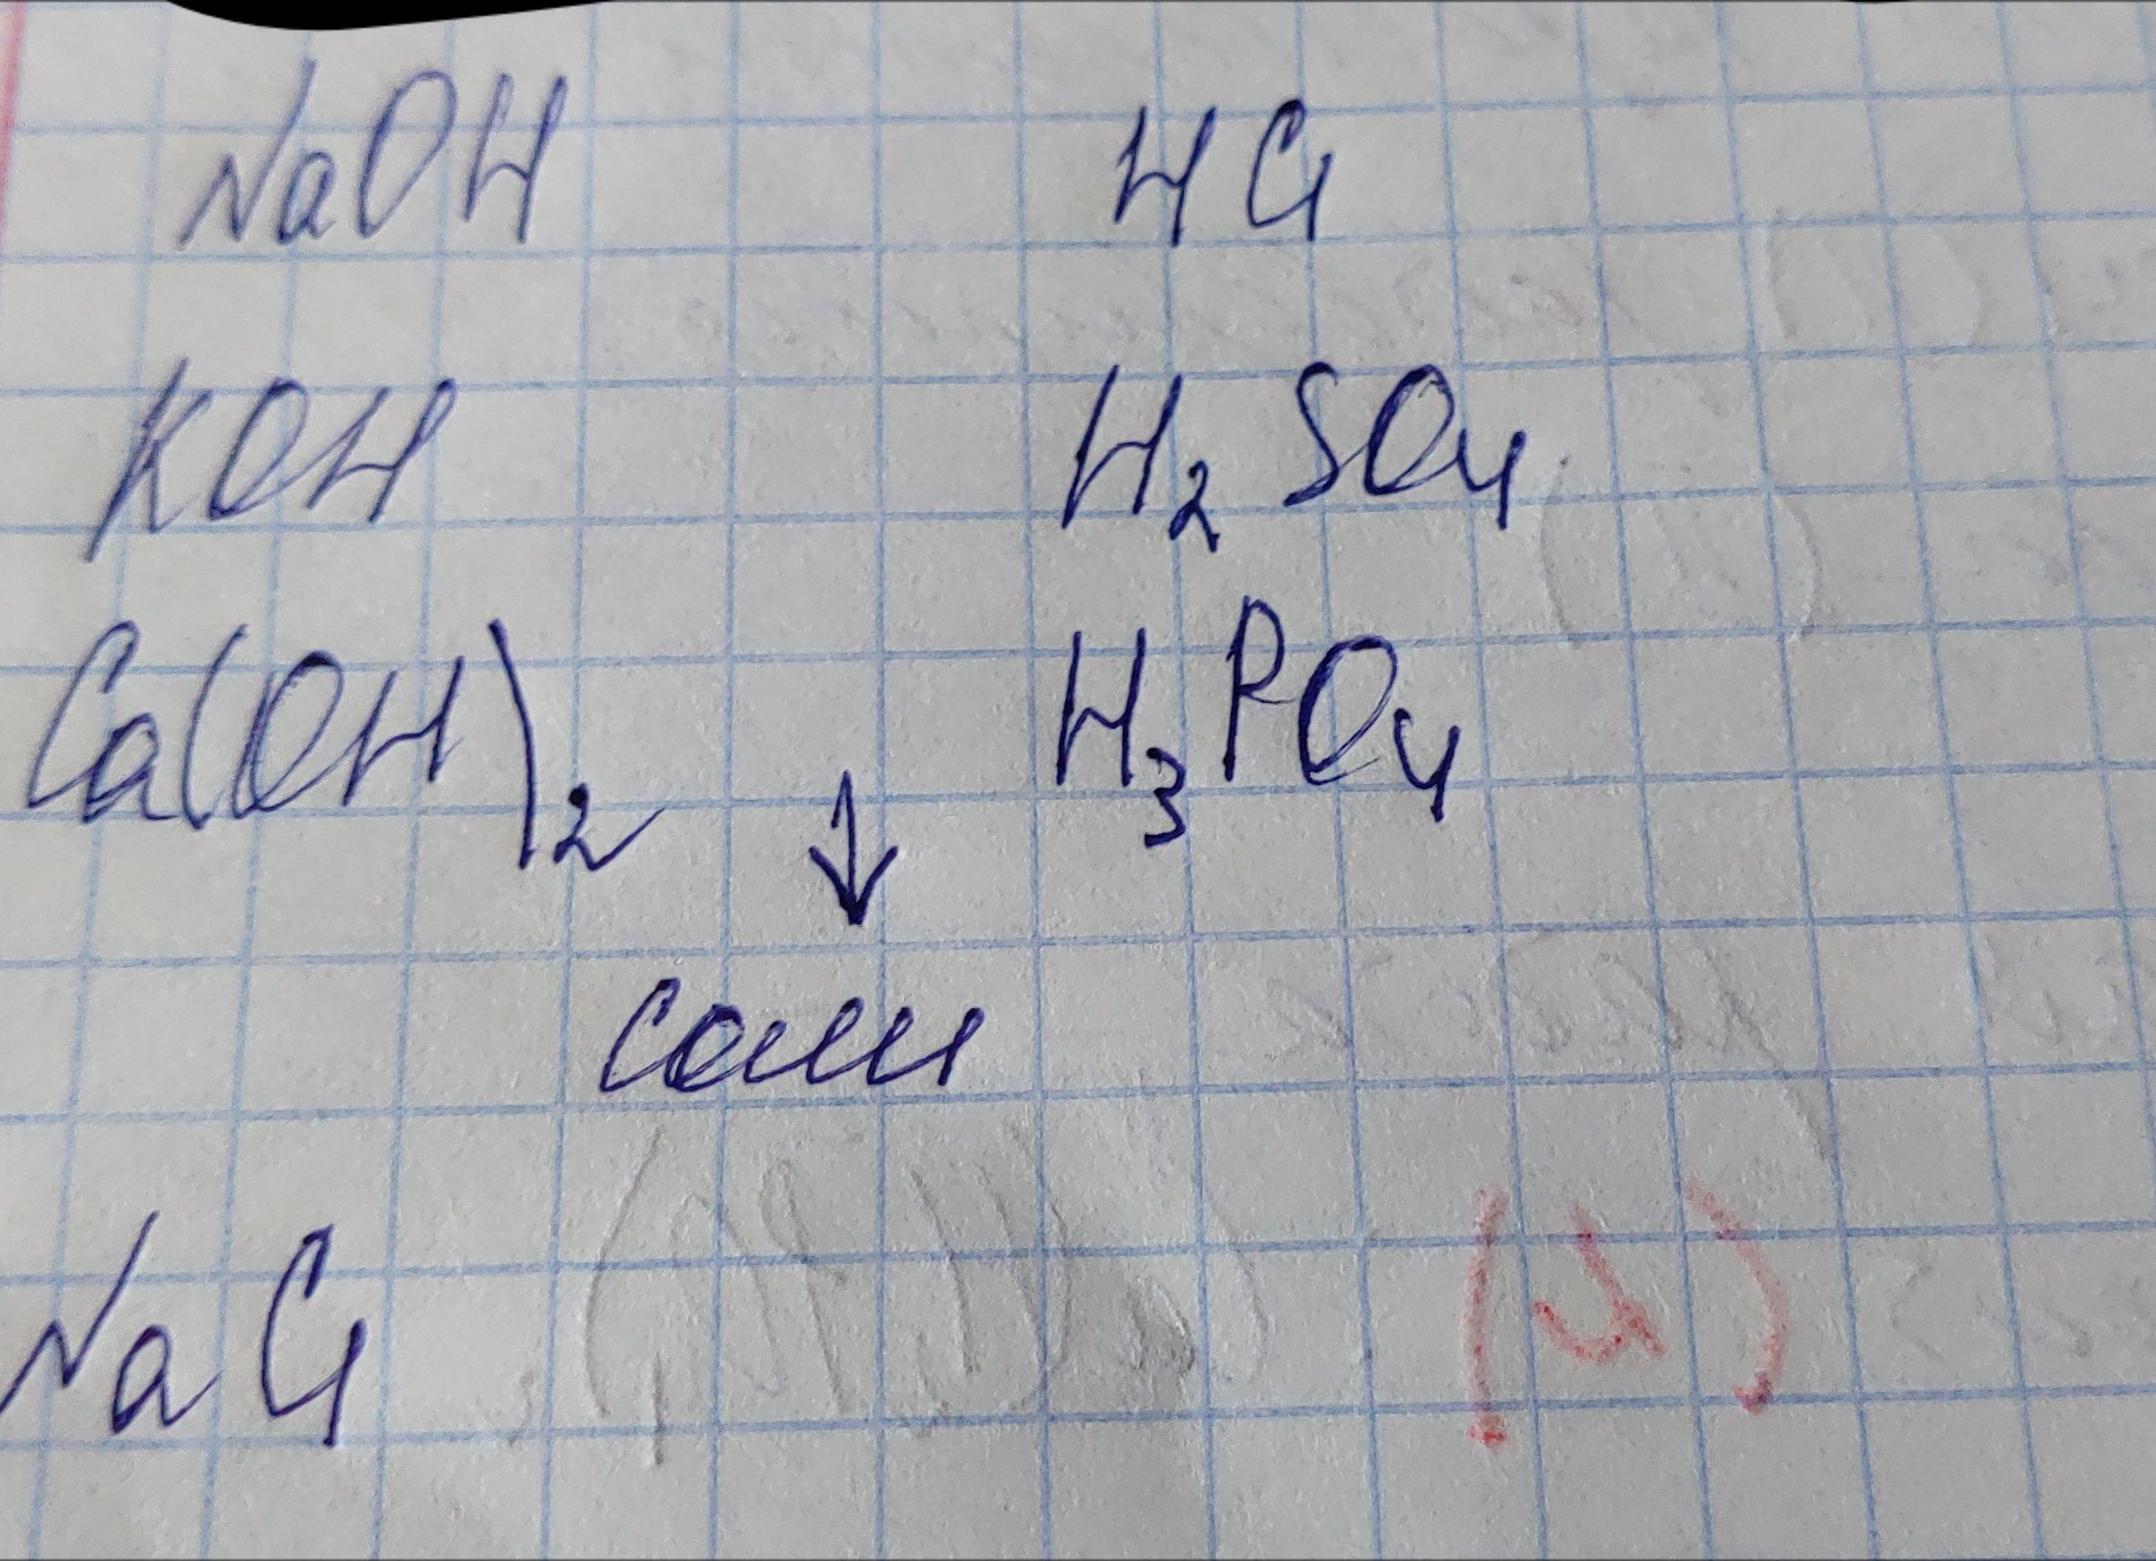 NaOH HCl
KOH H₂SO₄
Ca(OH)₂ H₃PO₄
↓
соли
NaCl
(4)